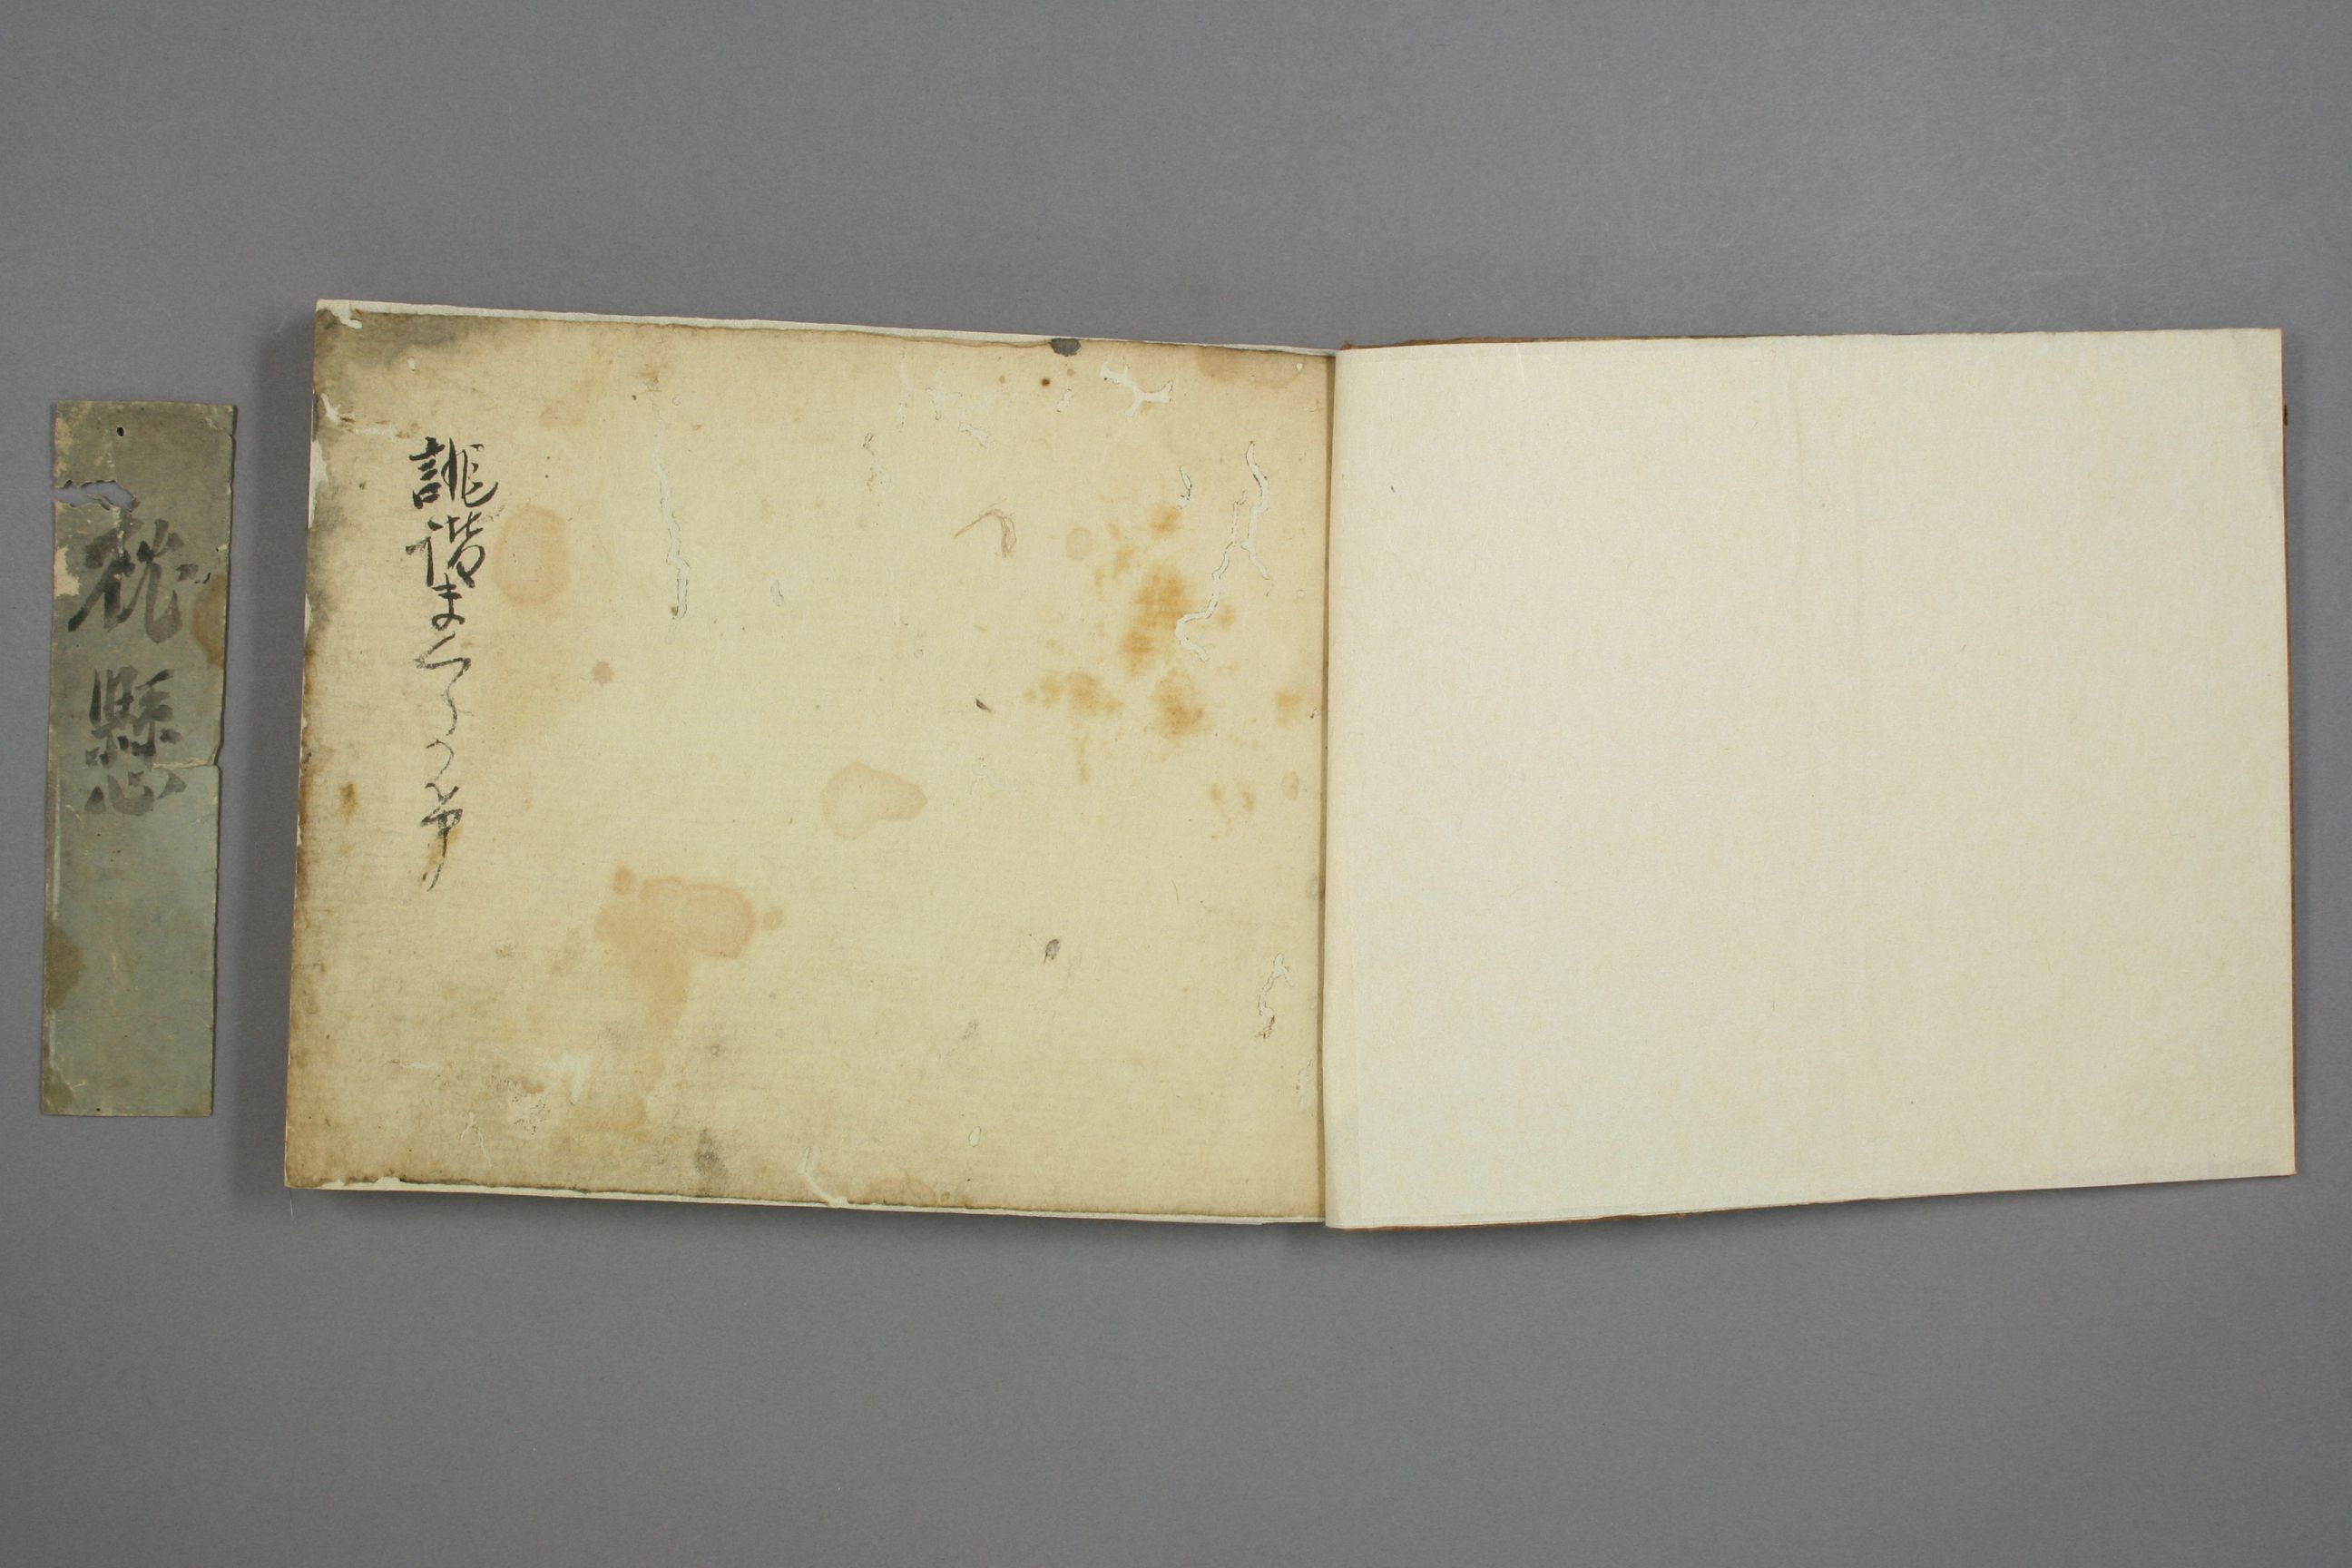 誹諧まくらかけ
枕懸